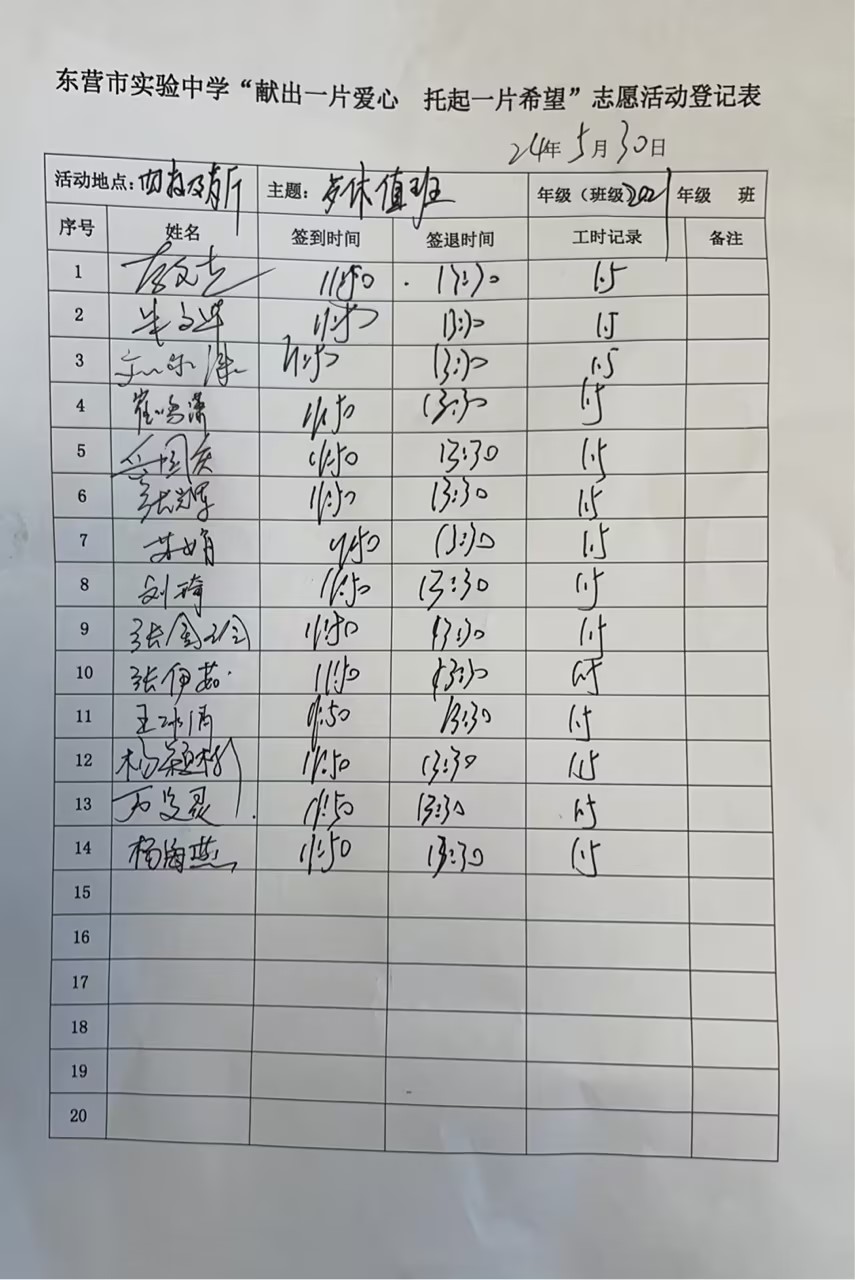 东营市实验中学“献出一片爱心 托起一片希望”志愿活动登记表
24年5月30日
活动地点: 主题: 午休值班 年级（班级 2021 年级 班
序号 姓名 签到时间 签退时间 工时记录 备注
1 11:50 13:30 1.5
2 11:50 13:30 1.5
3 11:50 13:30 1.5
4 崔鸣潇 11:50 13:30 1.5
5 11:50 13:30 1.5
6 11:50 13:30 1.5
7 11:50 13:30 1.5
8 刘琦 11:50 13:30 1.5
9 11:50 13:30 1.5
10 张伊茹 11:50 13:30 1.5
11 王冰清 11:50 13:30 1.5
12 11:50 13:30 1.5
13 11:50 13:30 1.5
14 杨海燕 11:50 13:30 1.5
15
16
17
18
19
20